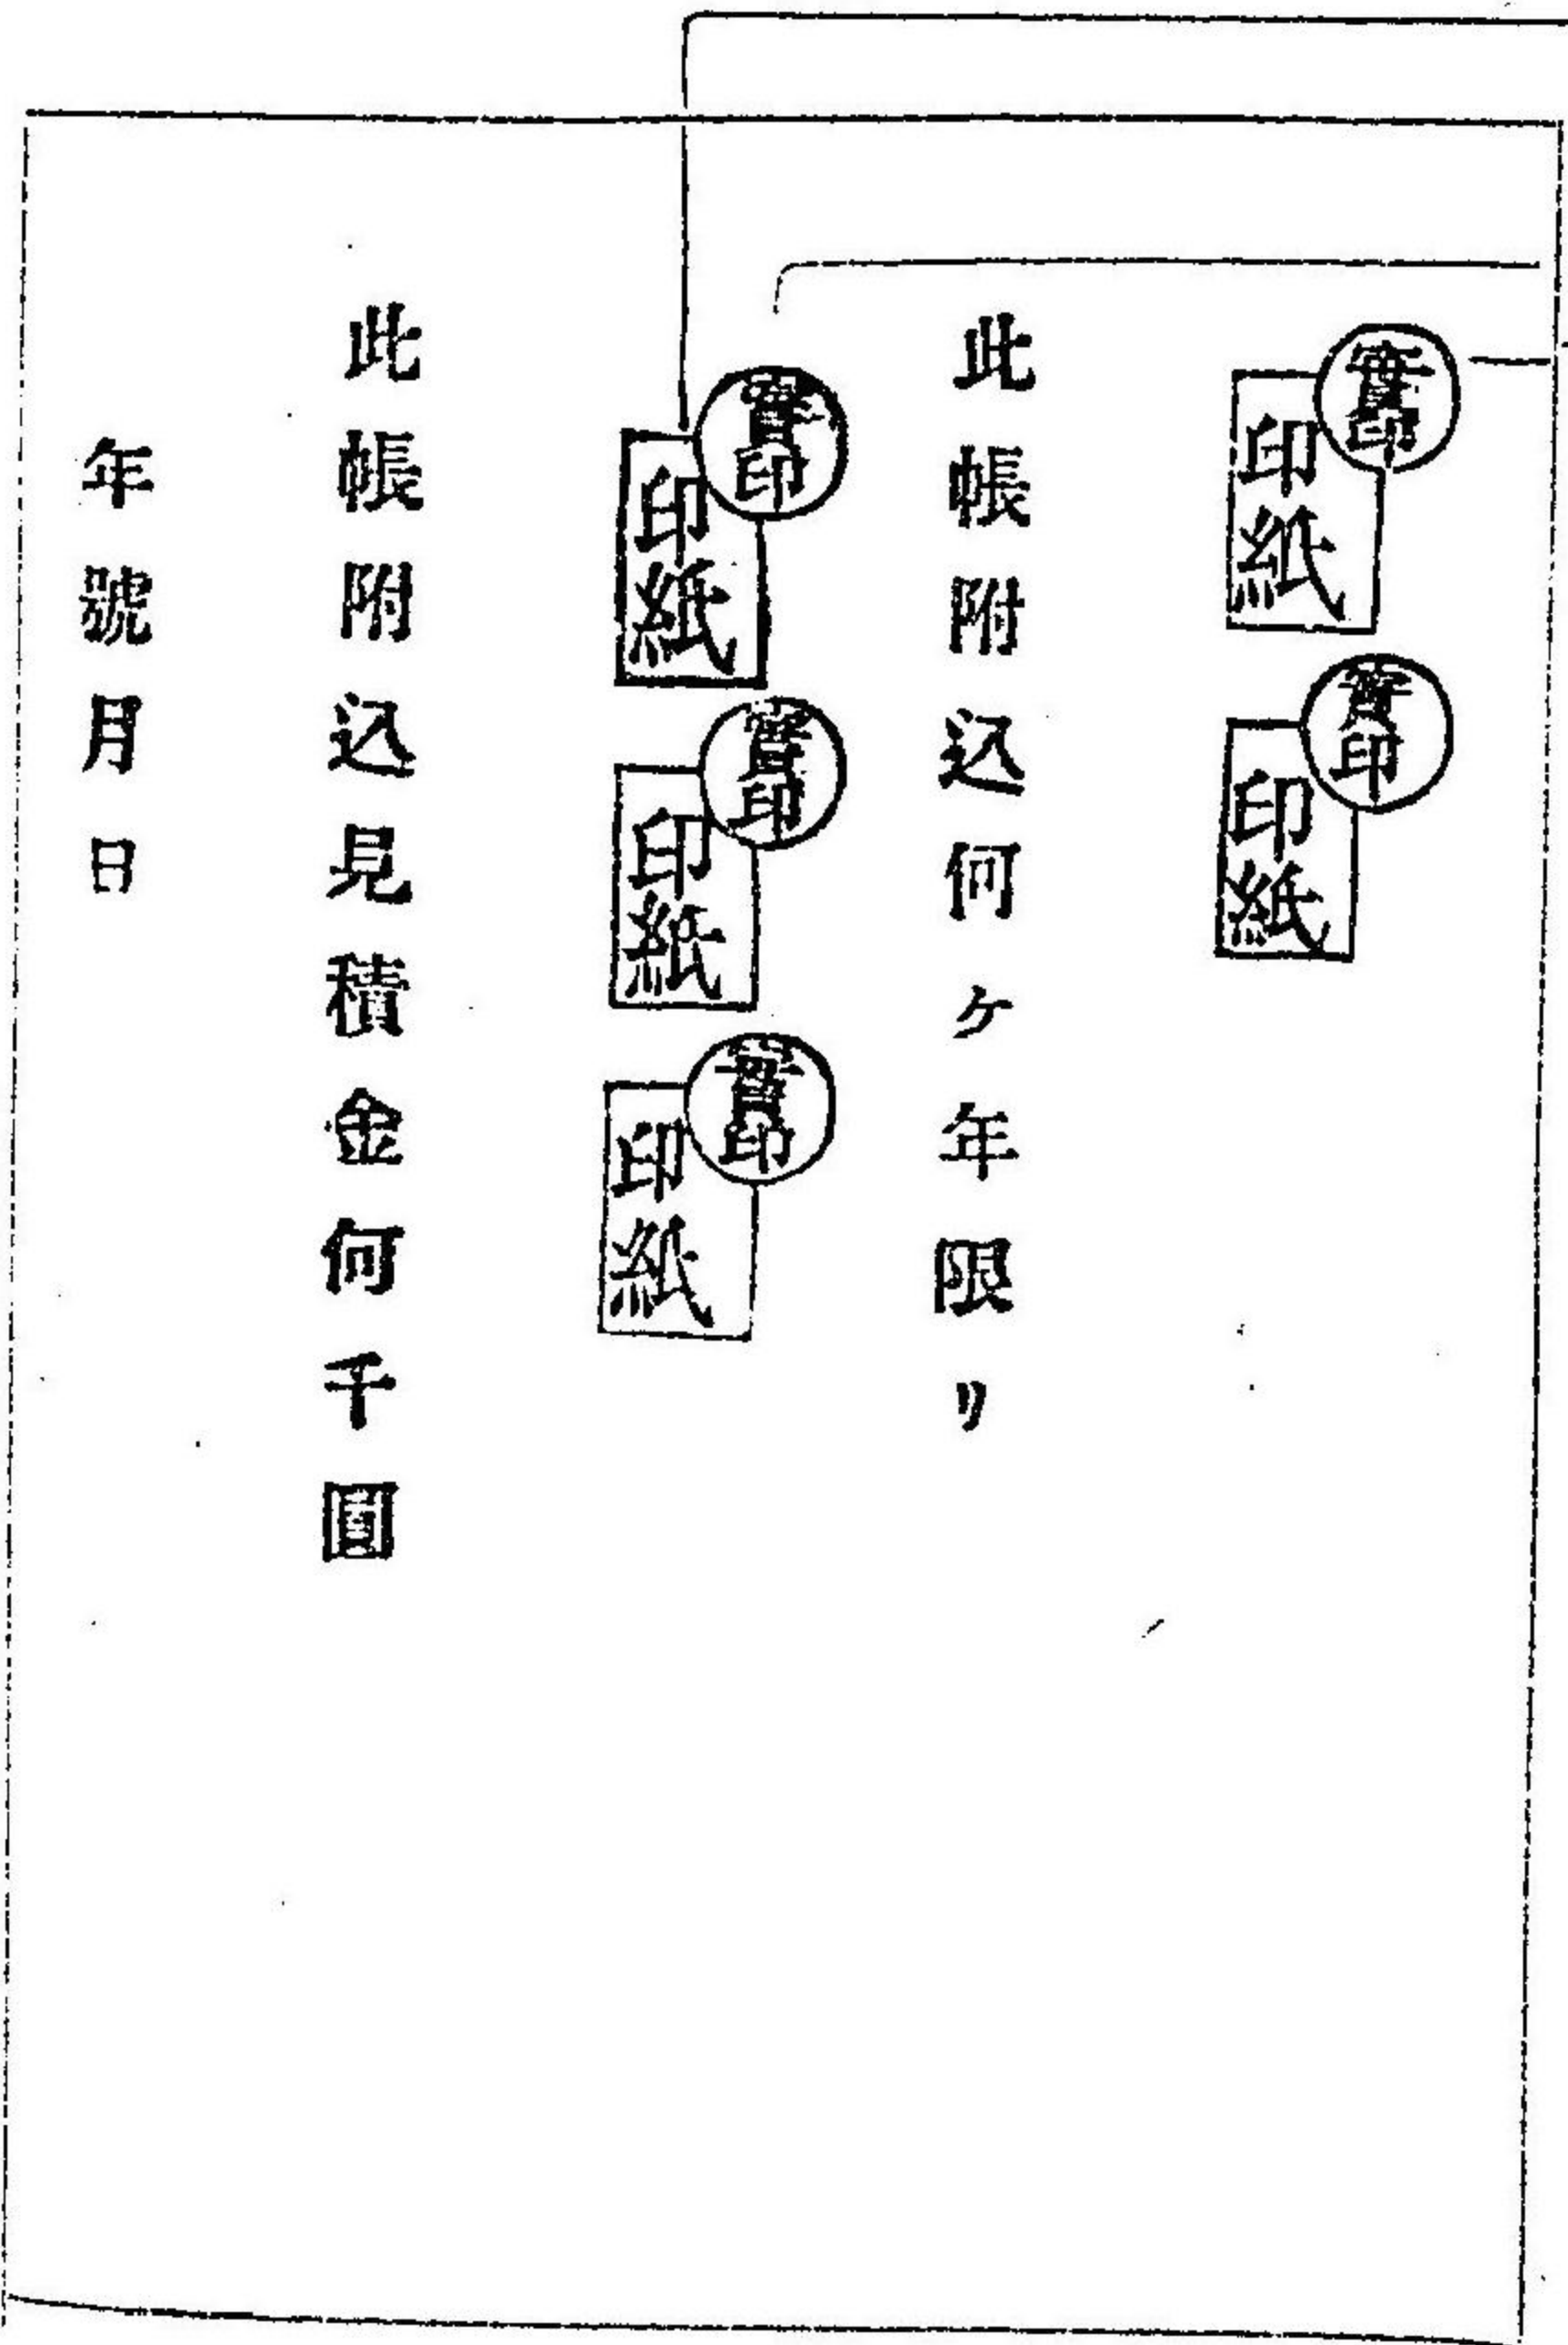 實印
印紙
實印
印紙
此帳附込何ヶ年限リ
實印
印紙
實印
印紙
實印
印紙
此帳附込見積金何千圓
年號月日